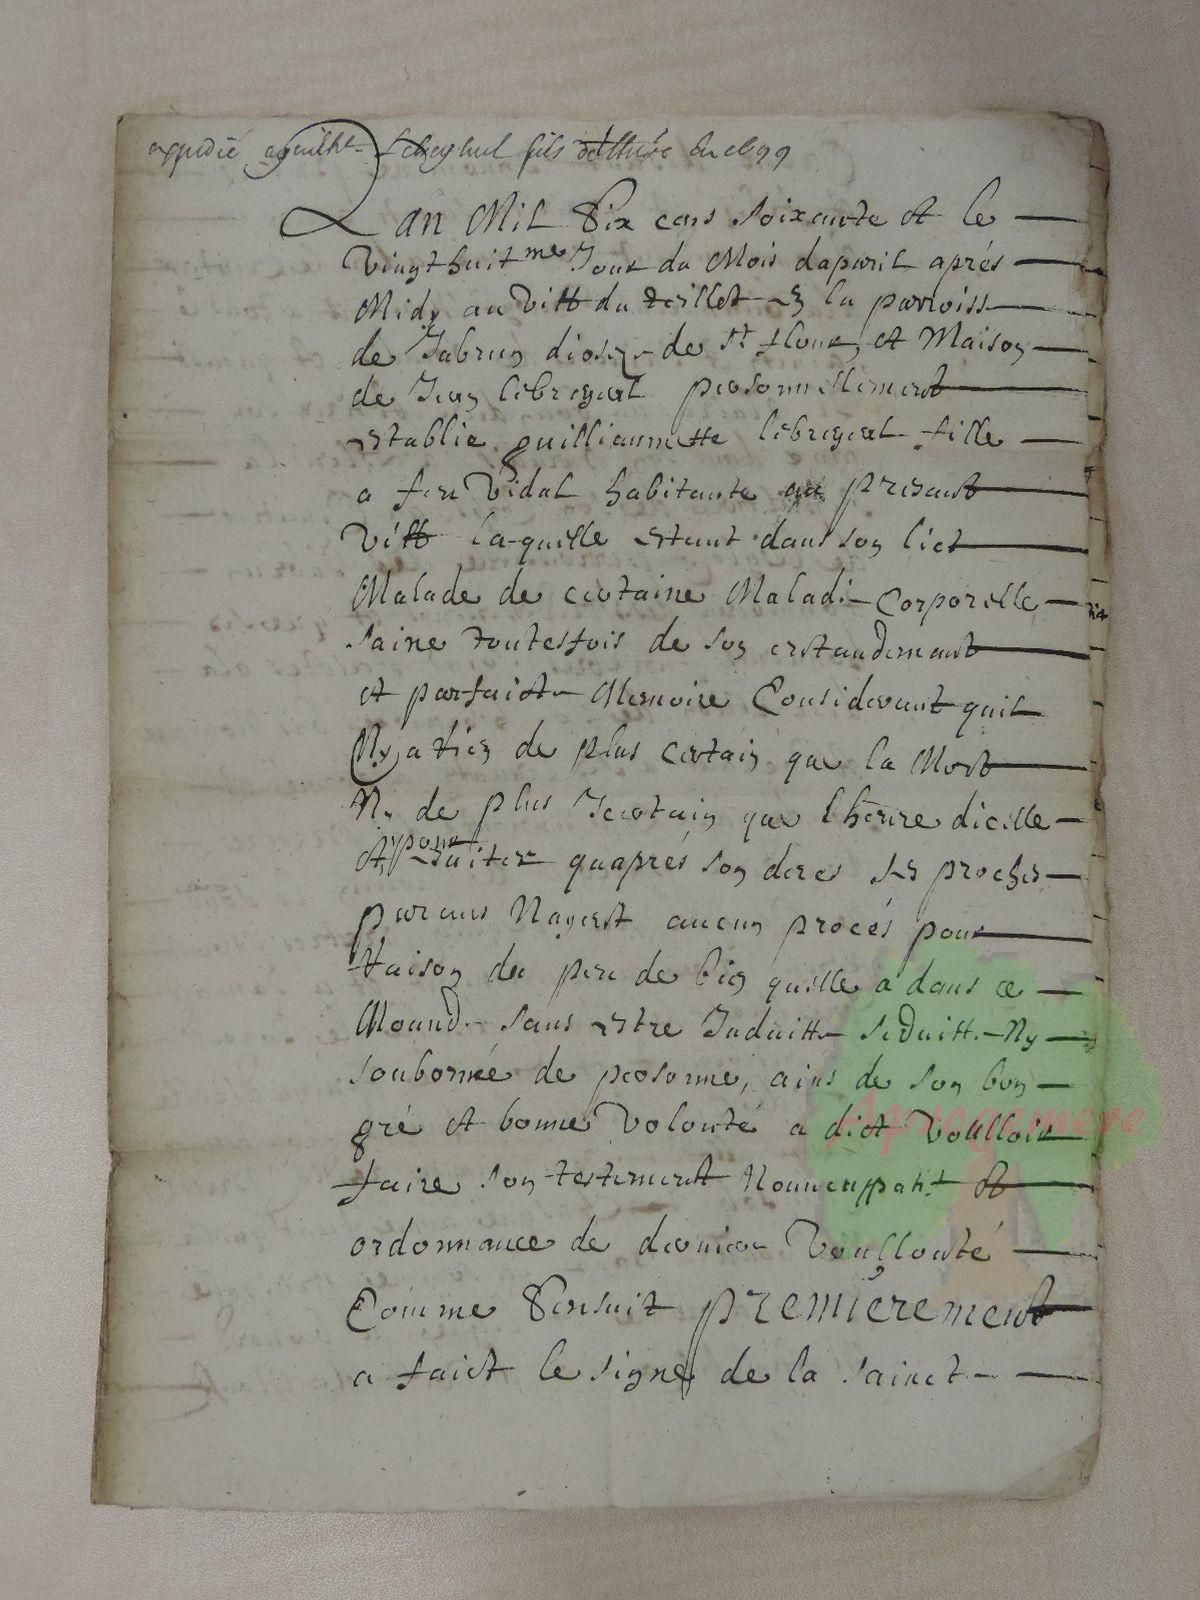 expedié a guilhe fils
Lan Mil Six cens soixante et le
Vingt huitme Jour du Mois dapvril aprés
Midy au Vill du teillet en la parroisse
de Jabrun dioseze de St flour, et Maison
de Jean lebreyeat personnellement
establie guilliaumette lebreyeat fille
a feu Vidal habitante au presant
Vill la quelle estant dans son lict
Malade de certaine Maladie Corporelle
saine toutesfois de son entandemant
et parfaicte Memoire Considerant quil
Ny a rien de plus certain que la Mort
Ny de plus Incertain que lheure dicelle
Et pour esviter quaprés son deces ses proches
parans Nayent aucun procés pour
raison du peu de bien quelle a dans ce
Mound. sans estre Induitte seduitte Ny
soubornée de personne, ains de son bon
gré et bonne Volonté a dict Voulloir
faire son testement Nouncupatif et
ordonnance de derniere Voullonté
Comme Sensuit premierement
a faict le signe de la Sainct
Aprogemere